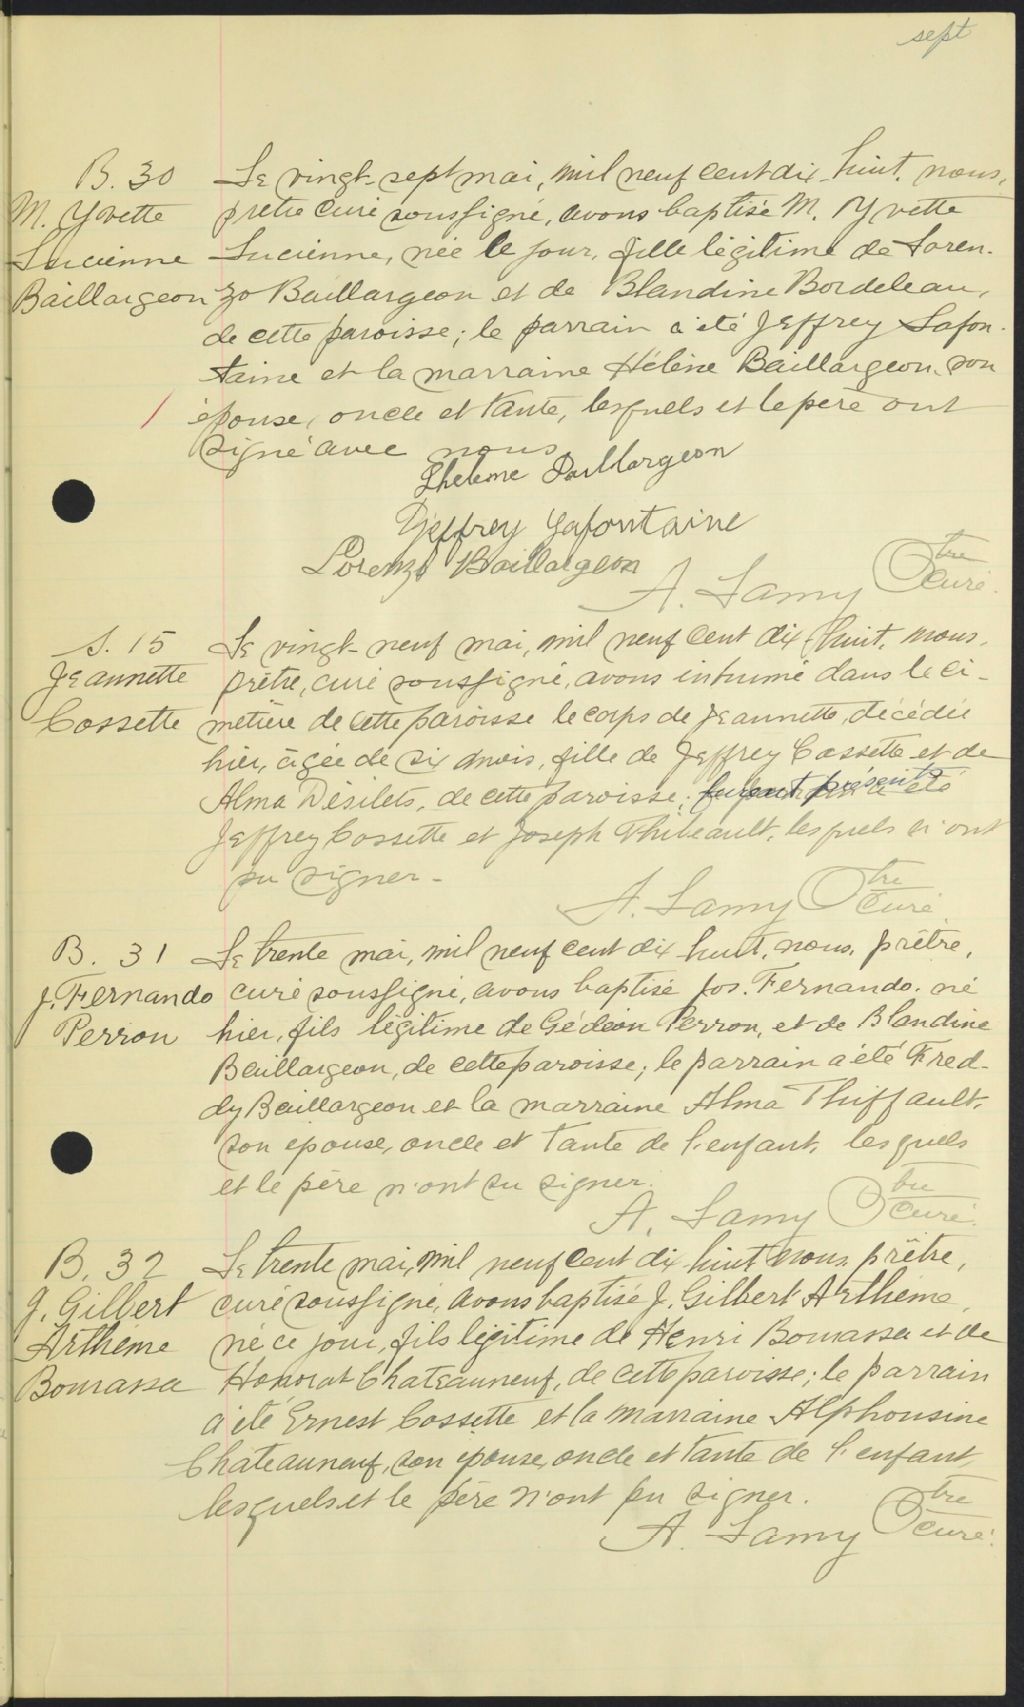 sept
B. 30
M. Yvette
Lucienne
Baillargeon
Le vingt-sept mai, mil neuf cent dix-huit, nous,
prêtre curé soussigné, avons baptisé M. Yvette
Lucienne, née le jour, fille légitime de Loren-
zo Baillargeon et de Blandine Bordeleau,
de cette paroisse; le parrain a été Jeffrey Lafon-
taine et la marraine Hélène Baillargeon, son
épouse, oncle et tante, lesquels et le père ont
signé avec nous.
Baillargeon
Jeffrey Lafontaine
Lorenzo Baillargeon
A. Lamy Ptre curé.
S. 15
Jeannette
Cossette
Le vingt-neuf mai, mil neuf cent dix-huit, nous,
prêtre, curé soussigné, avons inhumé dans le ci-
metière de cette paroisse le corps de Jeannette, décédée
hier, âgée de six mois, fille de Jeffrey Cossette et de
Alma Désilets, de cette paroisse; furent présents
Jeffrey Cossette et Joseph Thibeault, lesquels n'ont
pu signer.
A. Lamy Ptre curé.
B. 31
J. Fernando
Perron
Le trente mai, mil neuf cent dix huit, nous, prêtre,
curé soussigné, avons baptisé Jos. Fernando, né
hier, fils légitime de Gédéon Perron, et de Blandine
Baillargeon, de cette paroisse; le parrain a été Fred-
dy Baillargeon et la marraine Alma Thiffault,
son épouse, oncle et tante de l'enfant, lesquels
et le père n'ont su signer.
A. Lamy Ptre curé.
B. 32
J. Gilbert
Arthème
Bourassa
Le trente mai, mil neuf cent dix huit nous, prêtre,
curé soussigné, avons baptisé J. Gilbert Arthème,
né ce jour, fils légitime de Henri Bourassa et de
Honorat Chateauneuf, de cette paroisse; le parrain
a été Ernest Cossette et la marraine Alphonsine
Chateauneuf, son épouse, oncle et tante de l'enfant,
lesquels et le père n'ont pu signer.
A. Lamy Ptre curé.